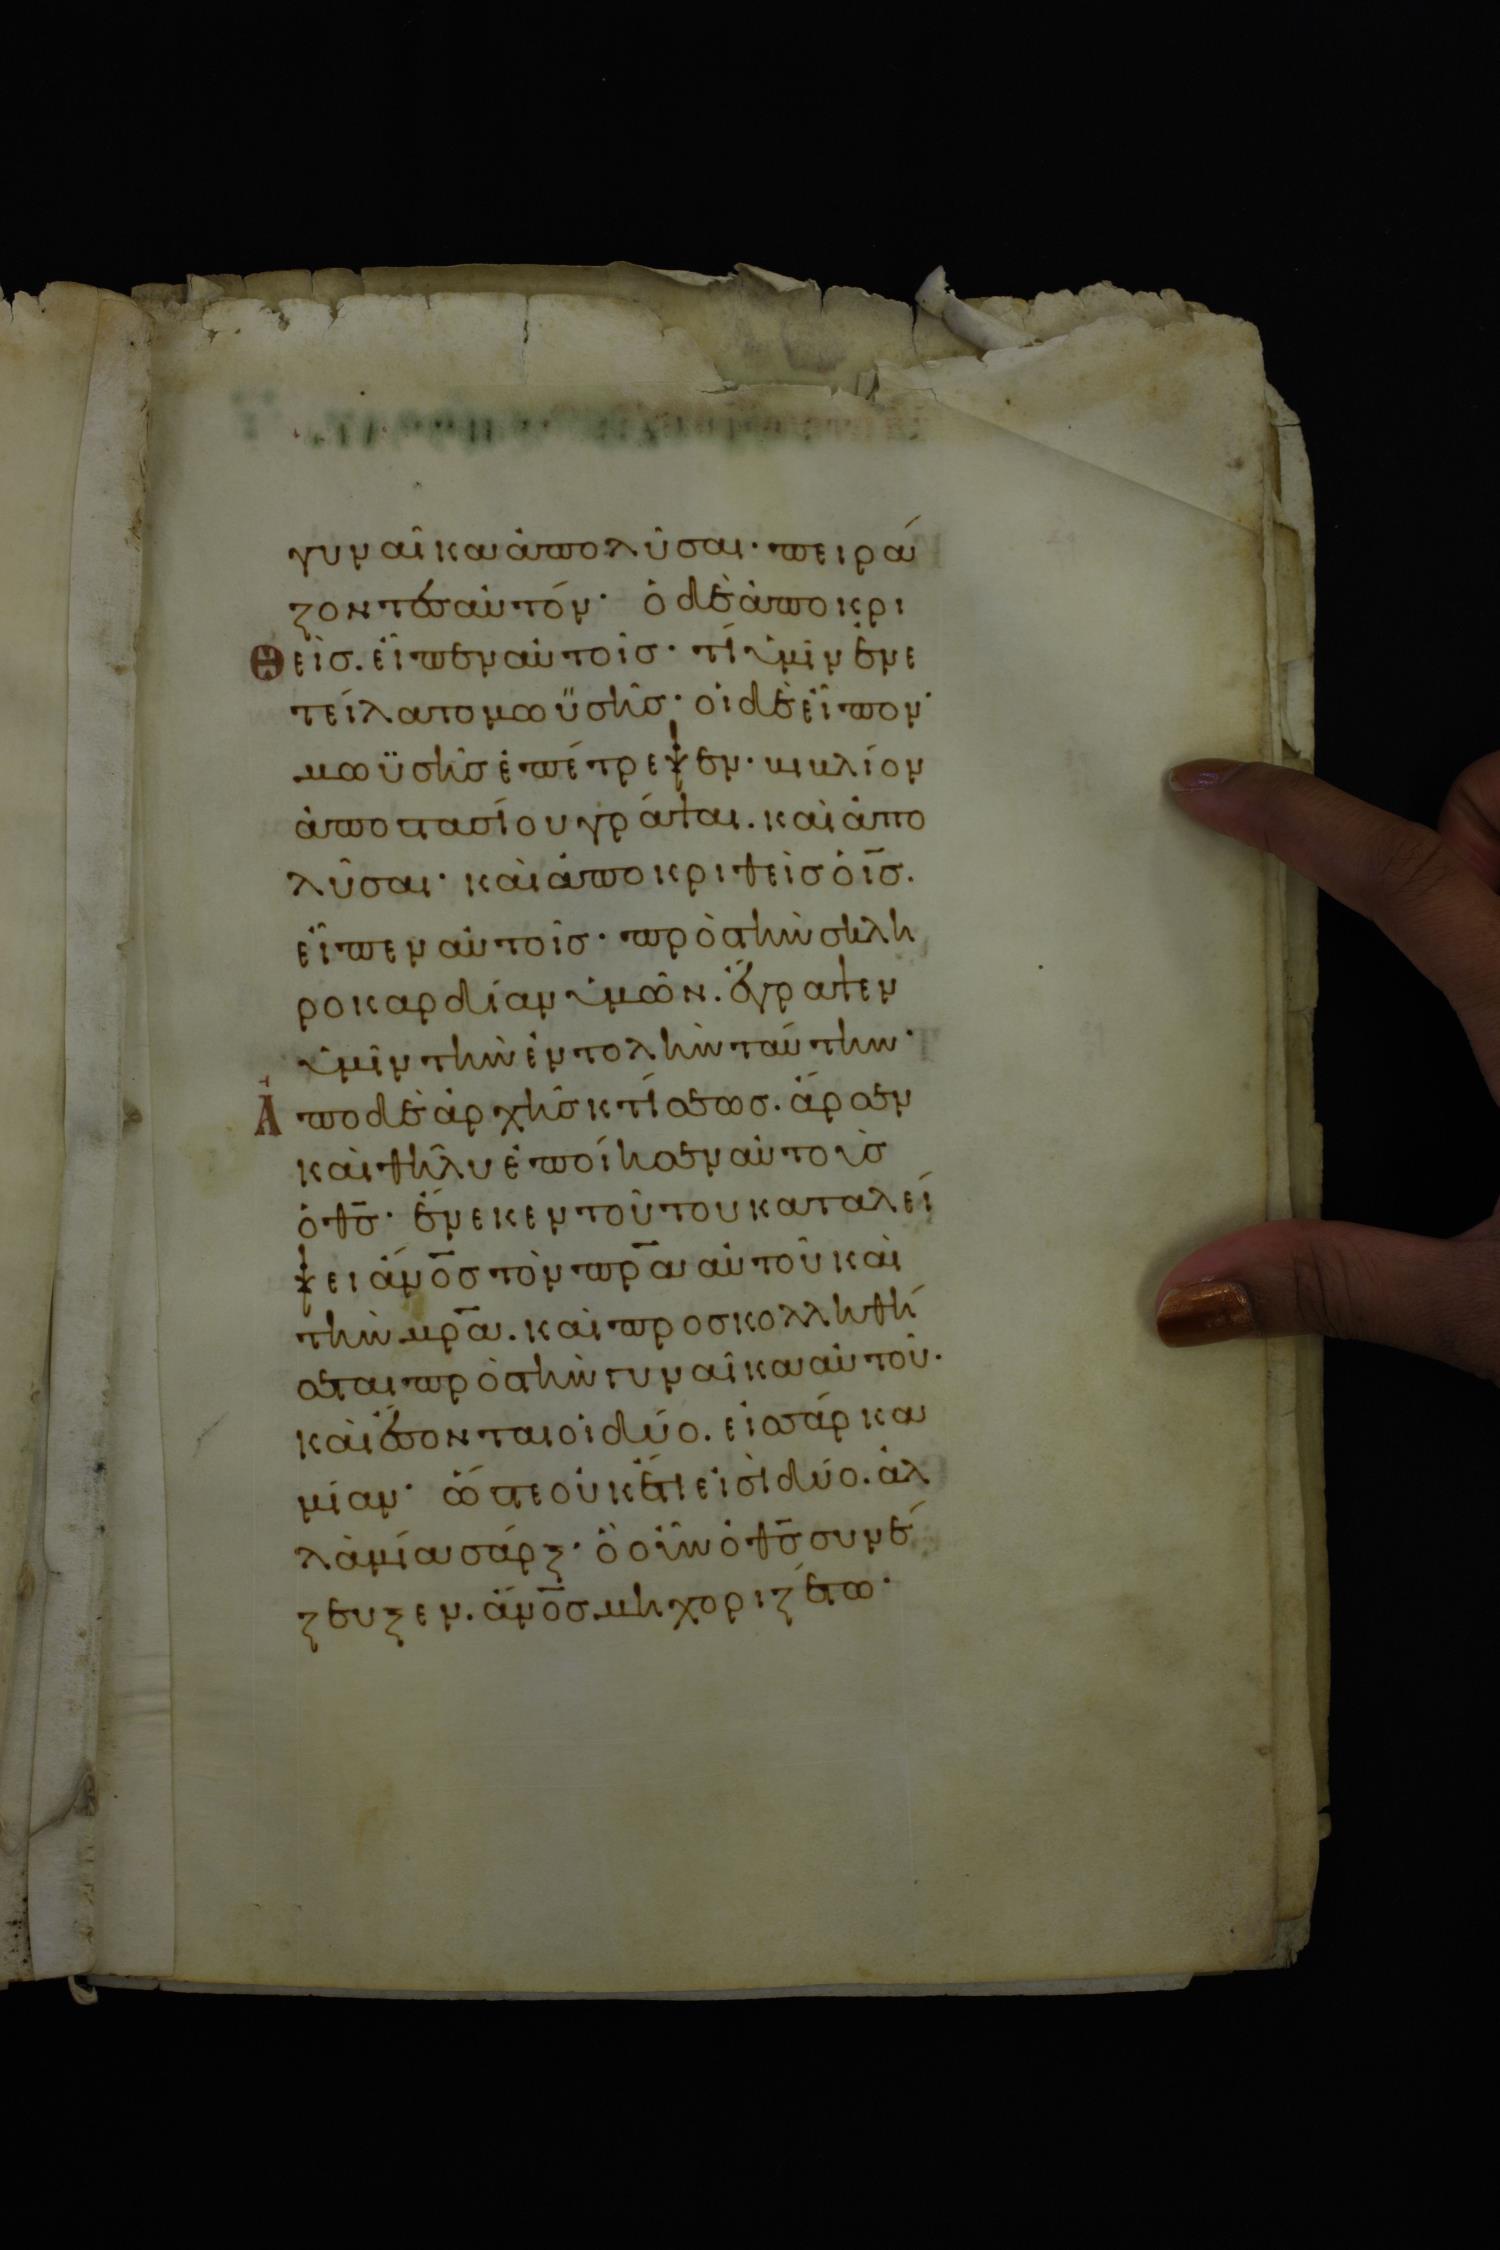 γυναῖκα ἀπολῦσαι· πειρά
ζοντεσ αὐτόν· ὁ δὲ ἀποκρι
Θεὶσ. εἶπεν αὐτοῖσ· τί ὑμῖν ἐνε
τείλατο μωϋσῆσ· οἱ δὲ εἶπον·
μωϋσῆσ ἐπέτρεψεν· βιβλίον
ἀποστασίου γράψαι. καὶ ἀπο
λῦσαι· καὶ ἀποκριθεὶσ ὁ ι̅σ̅.
εἶπεν αὐτοῖσ· πρὸσ τὴν σκλη
ροκαρδίαν ὑμῶν. ἔγραψεν
ὑμῖν τὴν ἐντολὴν ταύτην·
Ἀπο δὲ ἀρχῆσ κτίσεωσ. ἄρσεν
καὶ θῆλυ ἐποίησεν αὐτοὺσ
ὁ θ̅σ̅· ἕνεκεν τούτου καταλεί
ψει ἄν̅ο̅σ̅ τὸν π̅ρ̅α̅ αὐτοῦ καὶ
τὴν μ̅ρ̅α̅. καὶ προσκολληθή
σεται πρὸσ τὴν γυναῖκα αὐτοῦ.
καὶ ἔσονται οἱ δύο. εἰσ σάρκα
μίαν· ὥστε οὐκ ἔτι εἰσὶ δύο. ἀλ
λὰ μία σάρξ· ὃ οὖν ὁ θ̅σ̅ συνέ
ζευξεν. ἄν̅ο̅σ̅ μη χοριζέτω·